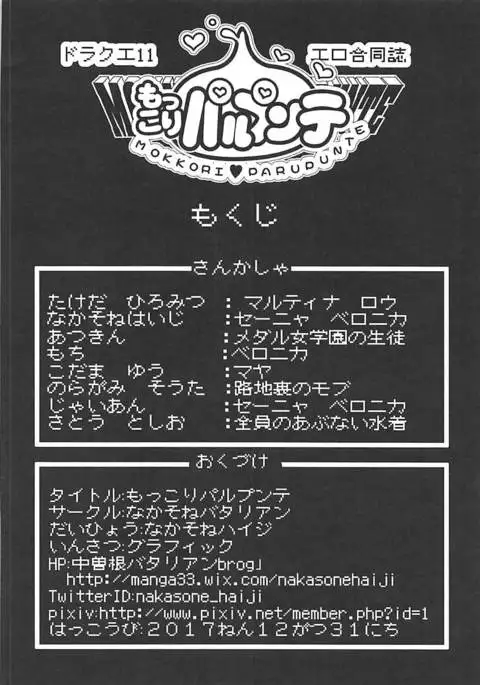 ドラクエ11
エロ合同誌
もっこり
パルプンテ
MOKKORI♥PARUPUNTE
もくじ
さんかしゃ
たけだ ひろみつ : マルティナ ロウ
なかそねはいじ :セーニャ ベロニカ
あつきん :メダル女学園の生徒
もち :ベロニカ
こだま ゆう :マヤ
のらがみ そうた :路地裏のモブ
じゃいあん :セーニャ ベロニカ
さとう としお :全員のあぶない水着
おくづけ
タイトル:もっこりパルプンテ
サークル:なかそねバタリアン
だいひょう:なかそねハイジ
いんさつ:グラフィック
HP:中曽根バタリアンbrog」
http://manga33.wix.com/nakasonehaiji
TwitterID:nakasone_haiji
pixiv:http://www.pixiv.net/member.php?id=1
はっこうび:2017ねん12がつ31にち